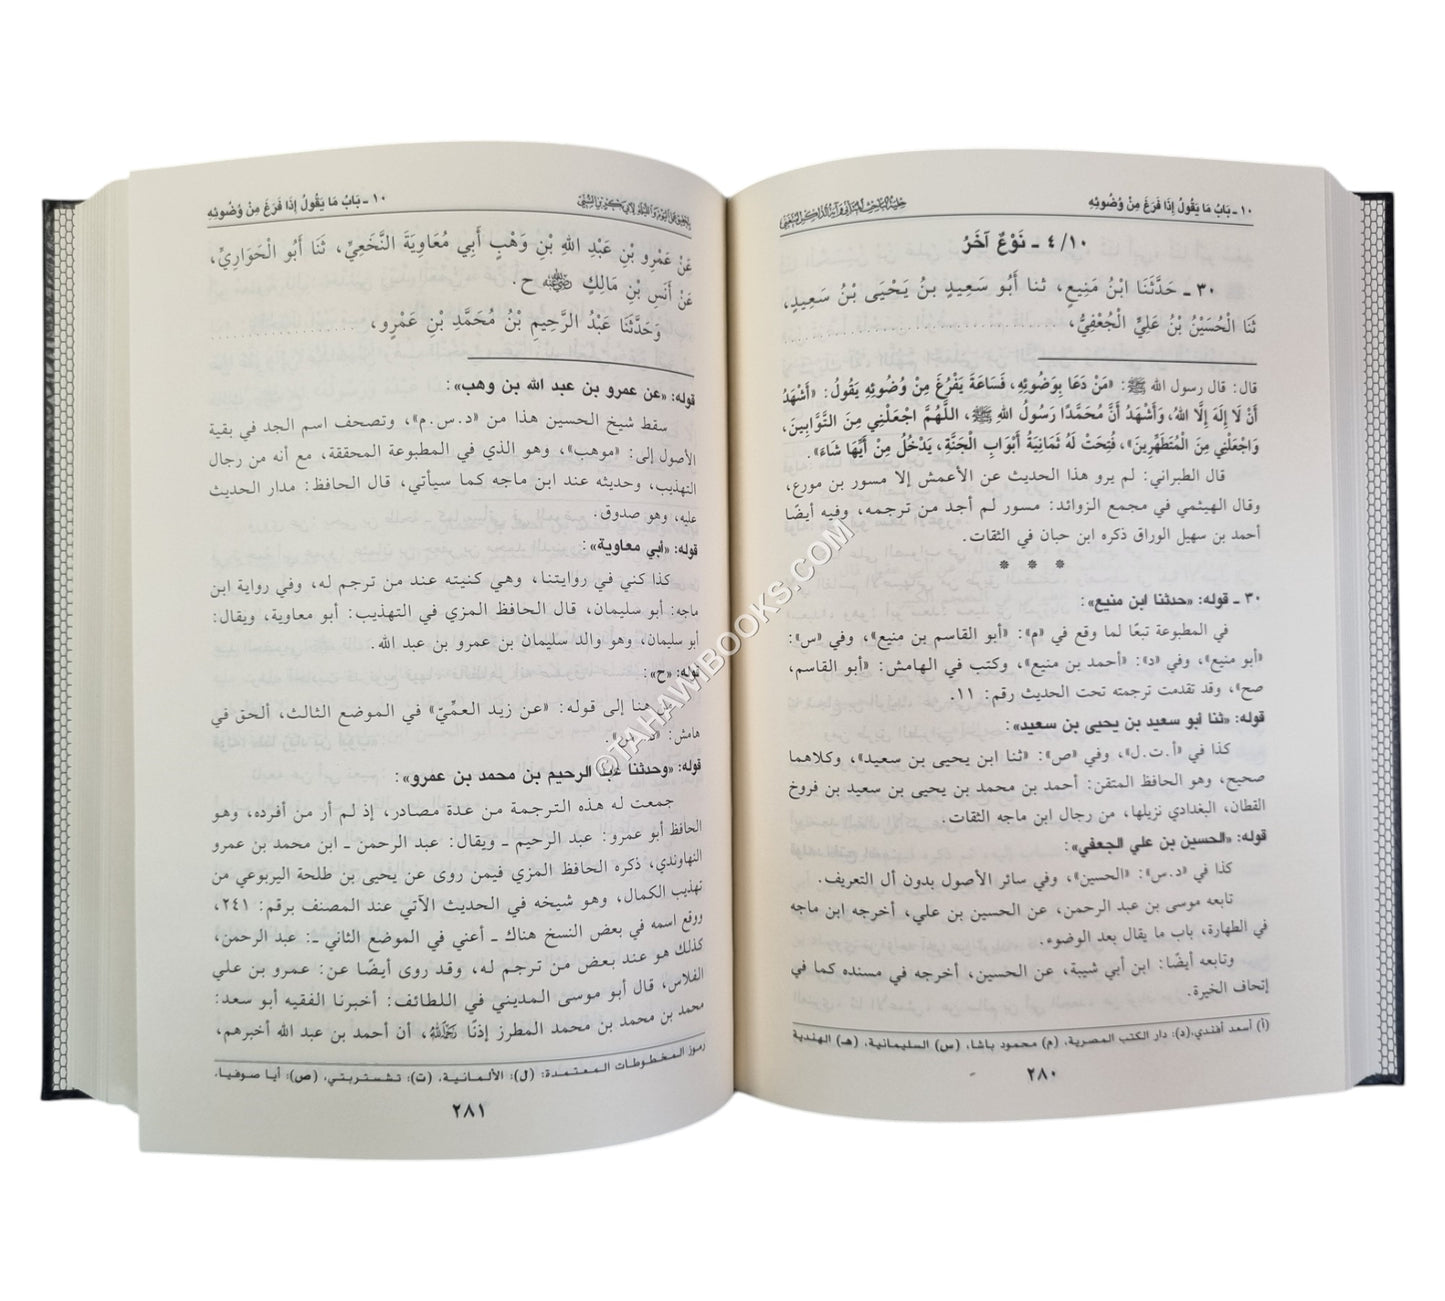 ١٠ ـ بَابُ مَا يَقُولُ إِذَا فَرَغَ مِنْ وُضُوئِهِ
١٠/ ٤ ـ نَوْعٌ آخَرُ
٣٠ ـ حَدَّثَنَا ابْنُ مَنِيعٍ، ثنا أَبُو سَعِيدٍ بنُ يَحْيَى بْنُ سَعِيدٍ،
ثَنَا الْحُسَيْنُ بْنُ عَلِيٍّ الْجُعْفِيُّ،
قال: قال رسول الله ﷺ: «مَنْ دَعَا بِوَضُوئِهِ، فَسَاعَةَ يَفْرُغُ مِنْ وُضُوئِهِ يَقُولُ: «أَشْهَدُ
أَنْ لَا إِلَهَ إِلَّا اللهُ، وَأَشْهَدُ أَنَّ مُحَمَّدًا رَسُولُ اللهِ ﷺ، اللَّهُمَّ اجْعَلْنِي مِنَ التَّوَّابِينَ،
وَاجْعَلْنِي مِنَ الْمُتَطَهِّرِينَ»، فُتِحَتْ لَهُ ثَمَانِيَةُ أَبْوَابِ الْجَنَّةِ، يَدْخُلُ مِنْ أَيِّهَا شَاءَ».
قال الطبراني: لم يرو هذا الحديث عن الأعمش إلا مسور بن مورع،
وقال الهيثمي في مجمع الزوائد: مسور لم أجد من ترجمه، وفيه أيضًا
أحمد بن سهيل الوراق ذكره ابن حبان في الثقات.
* * *
٣٠ ـ قوله: «حدثنا ابن منيع»:
في المطبوعة تبعًا لما وقع في «م»: «أبو القاسم بن منيع»، وفي «س»:
«أبو منيع»، وفي «د»: «أحمد بن منيع»، وكتب في الهامش: «أبو القاسم،
صح»، وقد تقدمت ترجمته تحت الحديث رقم: ١١.
قوله: «ثنا أبو سعيد بن يحيى بن سعيد»:
كذا في «أ.ت.ل»، وفي «ص»: «ثنا ابن يحيى بن سعيد»، وكلاهما
صحيح، وهو الحافظ المتقن: أحمد بن محمد بن يحيى بن سعيد بن فروخ
القطان، البغدادي نزيلها، من رجال ابن ماجه الثقات.
قوله: «الحسين بن علي الجعفي»:
كذا في «د.س»: «الحسين»، وفي سائر الأصول بدون أل التعريف.
تابعه موسى بن عبد الرحمن، عن الحسين بن علي، أخرجه ابن ماجه
في الطهارة، باب ما يقال بعد الوضوء.
وتابعه أيضًا: ابن أبي شيبة، عن الحسين، أخرجه في مسنده كما في
إتحاف الخيرة.
(أ) أسعد أفندي،(د): دار الكتب المصرية، (م) محمود باشا، (س) السليمانية، (هـ) الهندية
٢٨٠
١٠ ـ بَابُ مَا يَقُولُ إِذَا فَرَغَ مِنْ وُضُوئِهِ
عَنْ عَمْرِو بْنِ عَبْدِ اللهِ بْنِ وَهْبٍ أَبِي مُعَاوِيَةَ النَّخَعِيِّ، ثَنَا أَبُو الْحَوَارِيِّ،
عَنْ أَنَسِ بْنِ مَالِكٍ رضي الله عنه ح.
وَحَدَّثَنَا عَبْدُ الرَّحِيمِ بْنُ مُحَمَّدِ بْنِ عَمْرٍو،
قوله: «عن عمرو بن عبد الله بن وهب»:
سقط شيخ الحسين هذا من «د.س.م»، وتصحف اسم الجد في بقية
الأصول إلى: «موهب»، وهو الذي في المطبوعة المحققة، مع أنه من رجال
التهذيب، وحديثه عند ابن ماجه كما سيأتي، قال الحافظ: مدار الحديث
عليه، وهو صدوق.
قوله: «أبي معاوية»:
كذا كني في روايتنا، وهي كنيته عند من ترجم له، وفي رواية ابن
ماجه: أبو سليمان، قال الحافظ المزي في التهذيب: أبو معاوية، ويقال:
أبو سليمان، وهو والد سليمان بن عمرو بن عبد الله.
قوله: «ح»:
من هنا إلى قوله: «عن زيد العمِّيّ» في الموضع الثالث، ألحق في
هامش:
قوله: «وحدثنا عبد الرحيم بن محمد بن عمرو»:
جمعت له هذه الترجمة من عدة مصادر، إذ لم أر من أفرده، وهو
الحافظ أبو عمرو: عبد الرحيم ـ ويقال: عبد الرحمن ـ ابن محمد بن عمرو
النهاوندي، ذكره الحافظ المزي فيمن روى عن يحيى بن طلحة اليربوعي من
تهذيب الكمال، وهو شيخه في الحديث الآتي عند المصنف برقم: ٢٤١،
ووقع اسمه في بعض النسخ هناك ـ أعني في الموضع الثاني ـ: عبد الرحمن،
كذلك هو عند بعض من ترجم له، وقد روى أيضًا عن: عمرو بن علي
الفلاس، قال أبو موسى المديني في اللطائف: أخبرنا الفقيه أبو سعد:
محمد بن محمد بن محمد المطرز إذنًا رحمه الله، أن أحمد بن عبد الله أخبرهم،
رموز المخطوطات المعتمدة: (ل): الألمانية، (ت): تشستربتي، (ص): أيا صوفيا،
٢٨١
©TAHAWIBOOKS.COM